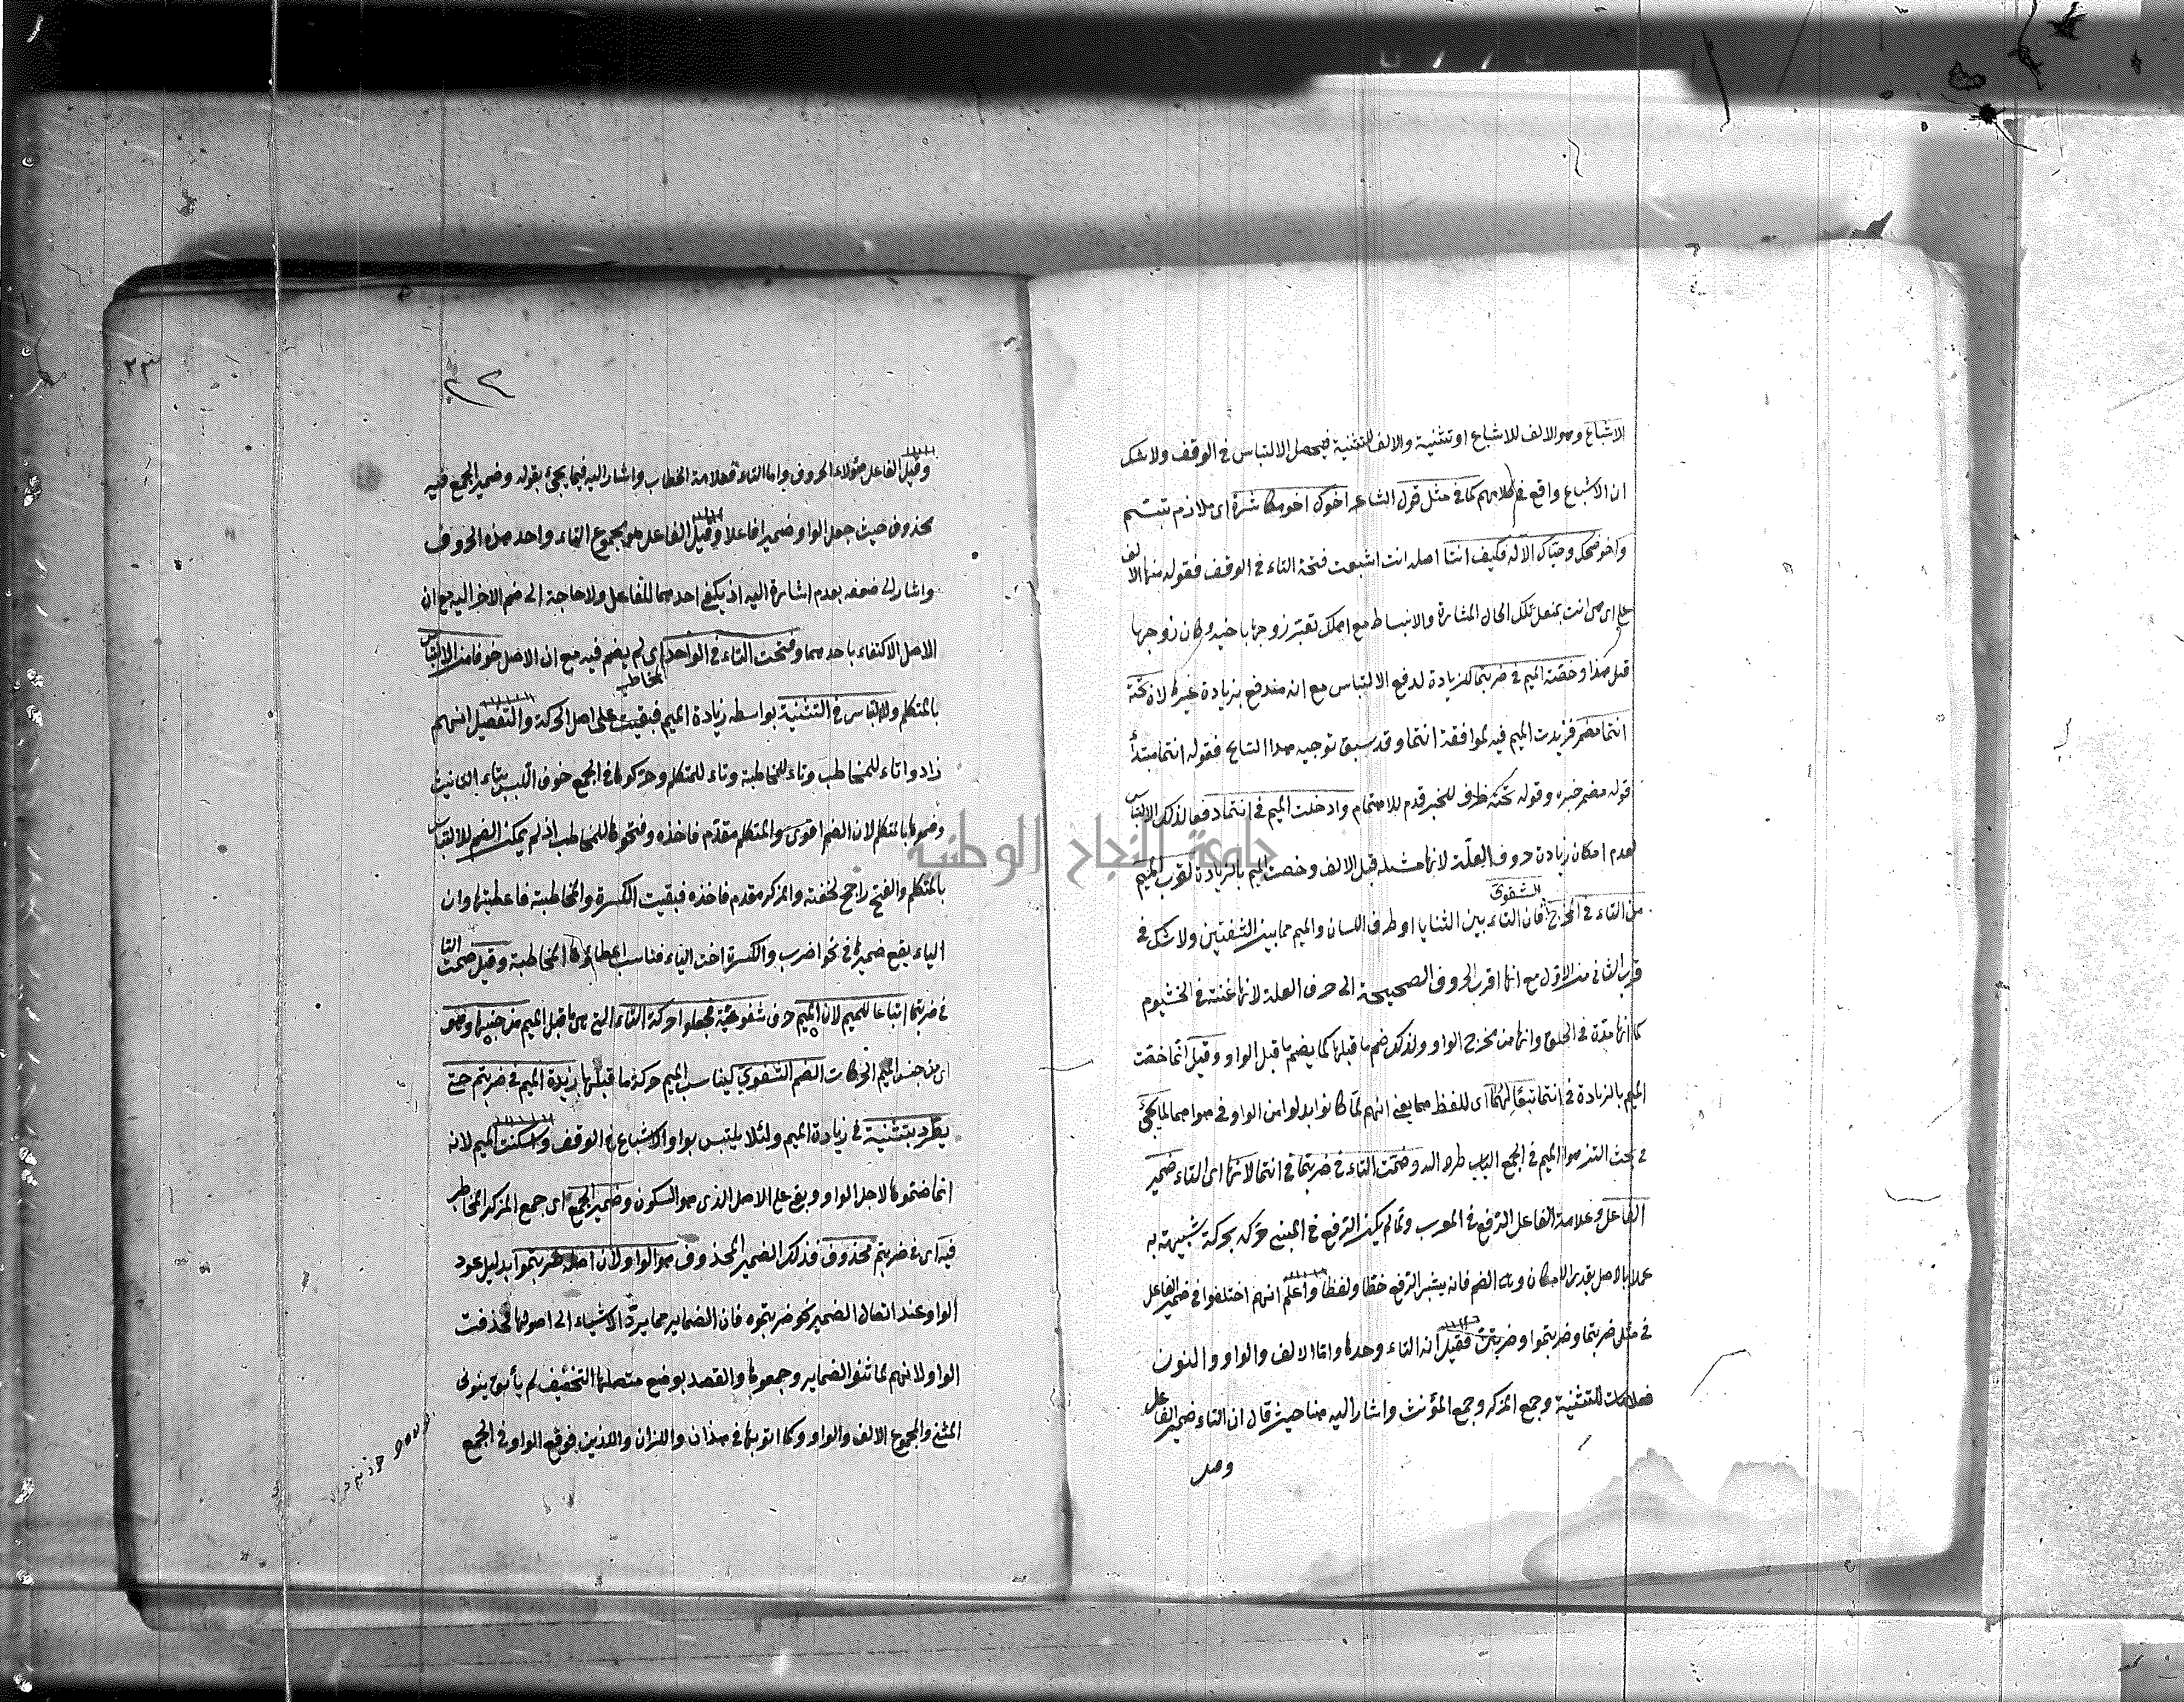 الاشباع وهو الالف للاشباع او تثنية والالف للتثنية فيحصل الالتباس في الوقف ولا شك
ان الاشباع واقع في كلامهم كما في مثل قول الشاعر اخوك اخو مكاشرة اي ملازم تبسم
واخو ضحك وحياك الاله فكيف انتا اصله انت اشبعت فتحة التاء في الوقف فقوله منها الالف
على اي انت بمعنى تلك الحال المشارة والانبساط مع اهلك تعتبر زوجها باخيه وكان زوجها
قبل هذا وخصت الميم في ضربتما للزيادة لدفع الالتباس مع انه مندفع بزيادة غيرها لان تحته
انتما مضمر فزيدت الميم فيه لموافقة انتما وقد سبق توجيه هذا التابع فقوله انتما مبتدأ
قوله مضمر خبره وقوله تحته ظرف للخبر قدم للاهتمام وادخلت الميم في انتما دفعا لذلك الالتباس
لعدم امكان زيادة حروف العلة لانها مشددة قبل الالف وخصت الميم بالزيادة لقرب الميم
الشفوي
من التاء في المخرج فان التاء بين الثنايا او طرف اللسان والميم مما بين الشفتين ولا شك في
قرب الثاني من الاول مع انها اقرب الحروف الصحيحة الى حرف العلة لانها غنة في الخيشوم
كما انها مدة في الحلق وانها من مخرج الواو ولذلك ضم ما قبلها كما يضم ما قبل الواو وقيل انما خصت
الميم بالزيادة في انتما تبعا لهما اي للفظ هما يعني انهم لما كانوا ابدلوا من الواو في هوا هما لما يجئ
في بحث التزموا الميم في الجمع الباب طردا له وضمت التاء في ضربتما في انتما لانها اي التاء ضمير
الفاعل وعلامة الفاعل الرفع في المعرب ولما لم يكن الرفع في المبني حركه بحركة شبيهة به
عملا بالاصل بقدر الامكان وهو الضم فانه يشبه الرفع خطا ولفظا واعلم انهم اختلفوا في ضمير الفاعل
في مثل ضربتما وضربتموا وضربتن فقيل انه التاء وحدها واما الالف والواو والنون
فعلامات للتثنية وجمع المذكر وجمع المؤنث واشار اليه هنا حيث قال ان التاء ضمير الفاعل
وقيل
٢٣
٢٢
وقيل الفاعل هؤلاء الحروف واما التاء فعلامة الخطاب واشار اليه فيما يجئ بقوله وضمير الجمع فيه
محذوف حيث جعل الواو ضميرا فاعلا وقيل الفاعل هو مجموع التاء واحد هذه الحروف
واشار الى ضعفه بعدم اشارة اليه اذ يكفي احدهما للفاعل ولا حاجة الى ضم الاخر اليه مع ان
الاصل الاكتفاء باحدهما وفتحت التاء في الواحد اي لم يضم فيه مع ان الاصل خوفا من الالتباس
المخاطب
بالمتكلم ولا التباس في التثنية بواسطة زيادة الميم فبقيت على اصل الحركة والتفصيل انهم
زادوا تاء للمخاطب وتاء للمخاطبة وتاء للمتكلم وحركوها في الجمع خوف اللبس بتاء التانيث
وضموها بالمتكلم لان الضم اقوى والمتكلم مقدم فاخذه وفتحوها للمخاطب اذ لم يمكن الضم للالتباس
بالمتكلم والفتح راجح لخفته والمذكر مقدم فاخذه فبقيت الكسرة والمخاطبة فاعطيتها وان
الياء يقع ضميرها في نحو اضربي والكسرة اخت الياء فناسب اعطاؤها المخاطبة وقيل ضمت التاء
في ضربتما اتباعا للميم لان الميم حرف شفوية فجعلوا حركة التاء التي هي ما قبل الميم من جنسها وهو
اي من جنس الميم الحركات الضم الشفوي ليناسب الميم حركة ما قبلها وزيدة الميم في ضربتم حتى
يطرد بتثنيته في زيادة الميم ولئلا يلتبس بواو الاشباع في الوقف واسكنت الميم لانه
انما ضموها لاجل الواو وبقي على الاصل الذي هو السكون وضمير الجمع اي جمع المذكر المخاطب
فيه اي في ضربتم محذوف فذلك الضمير المحذوف هو الواو ولان اصله ضربتموا بدليل عود
الواو عند اتصال الضمير نحو ضربتموه فان الضماير مما يرد الاشياء الى اصولها فحذفت
الواو لانهم لما ثنوا الضماير وجمعوها والقصد بوضع متصلها التخفيف لم يأتوا بنوني
المثنى والمجموع الالف والواو وكما اتوا بها في هذان واللذان واللذين فوقع الواو في الجمع